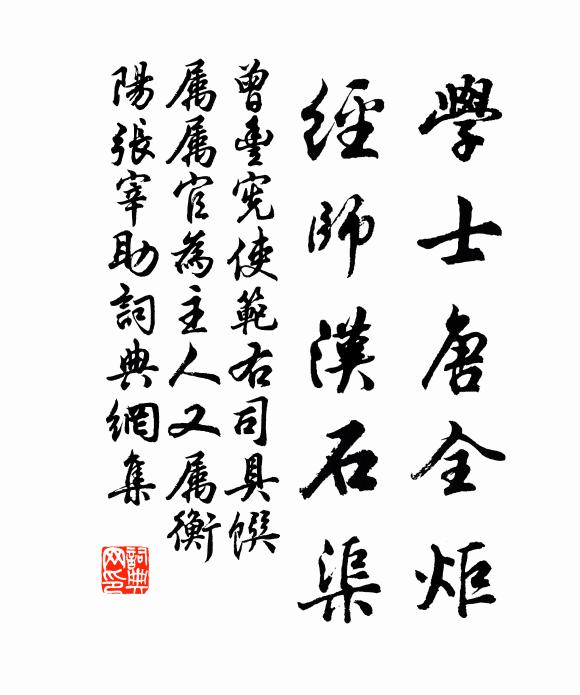 學士唐全炬
經師漢石渠
曾豐宪使範右司具饌
属属官為主人又属衡
陽張宰助詞典網集
詞典網印